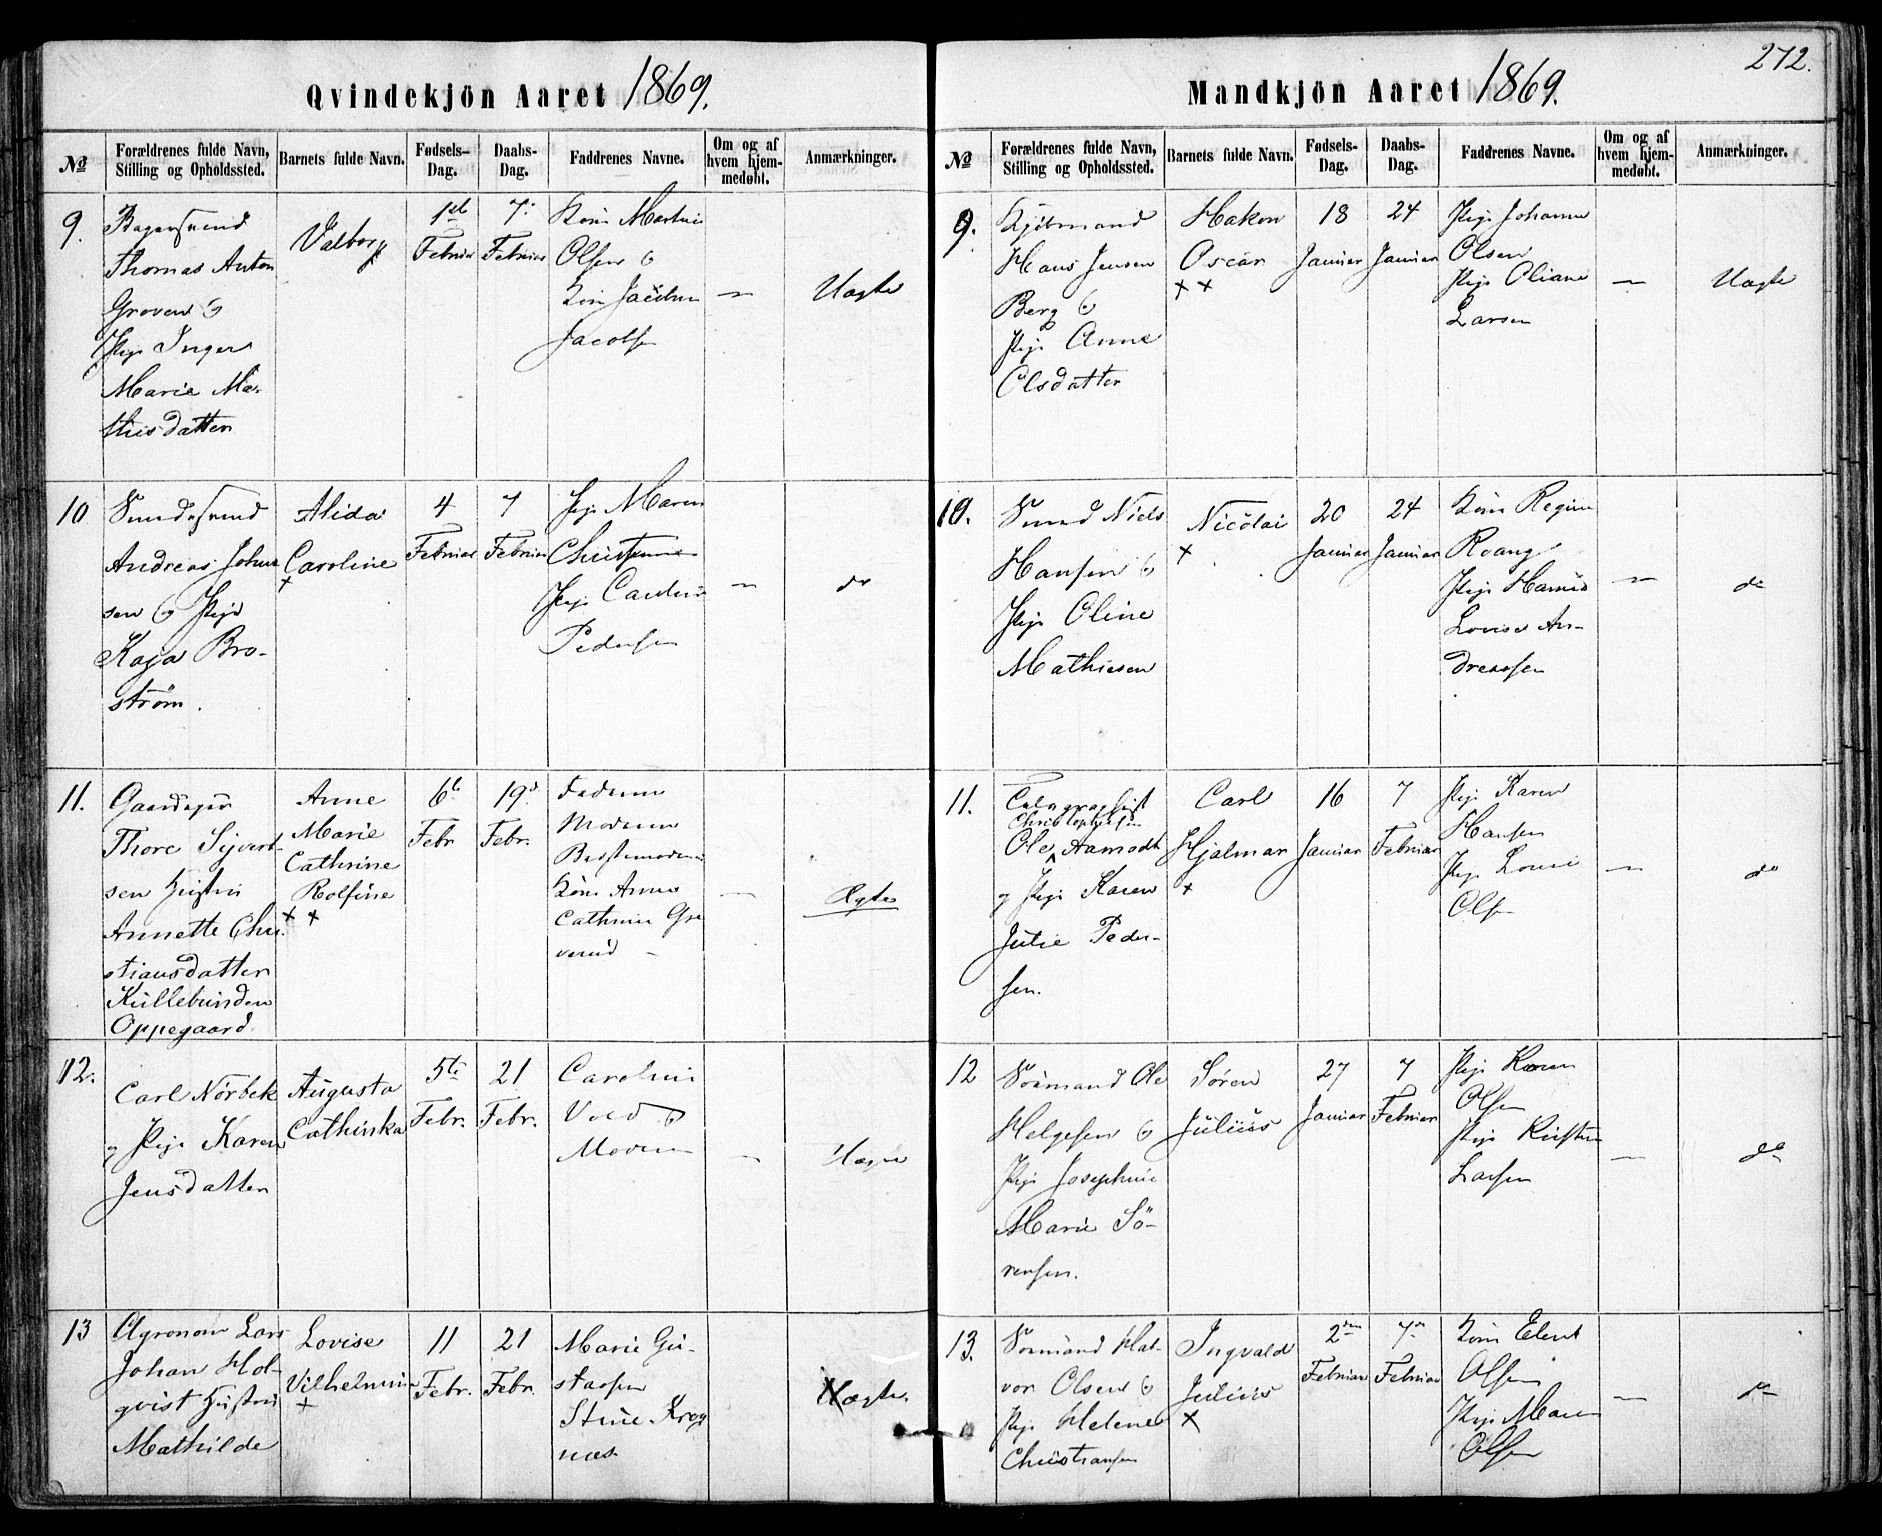 Qvindekjön Aaret 1869.
№
Forældrenes fulde Navn, Stilling og Opholdssted.
Barnets fulde Navn.
Fødsels-Dag.
Daabs-Dag.
Faddrenes Navne.
Om og af hvem hjemmedøbt.
Anmærkninger.
9.
Bagersvend
Thomas Anton
Groven og
Pige Inger
Marie Ma-
thisdatter
Valborg
1ste
Februar
7de
Februar
Kone
Olsen og
Kone
Jacobsen
—
Uægte
10
Svend
Andreas Johan
sen og Pige
Kaja Bro-
ström.
Alida
Caroline
+
4
Februar
7
Februar
Pige Maren
Pige
Pedersen
—
do
11.
Gaardeier
Thore Sivert-
sen Hustru
Annette Chri-
stiansdatter
Kullebunden
Oppegaard.
Anne
Marie
Cathrine
Rolfine
+ +
6te
Febr
19de
Febr.
Faderen
Moderen
Bedstemoderen
Kone Anne
Cathrine
—
Ægte
12.
Carl Nørbek
og Pige Karen
Jensdatter
Augusta
Cathinka
5te
Febr.
21
Febr.
Caroline
Vold og
Moderen
—
Uægte
13
Agronom Lars
Johan Hol-
qvist Hustru
Mathilde
Lovise
Vilhelmine
+
11
Febr.
21
Febr.
Marie Gu-
stafsen
Stine Krog
næs
Ægte.
Mandkjön Aaret 1869.
272.
№
Forældrenes fulde Navn, Stilling og Opholdssted.
Barnets fulde Navn.
Fødsels-Dag.
Daabs-Dag.
Faddrenes Navne.
Om og af hvem hjemmedøbt.
Anmærkninger.
9.
Kjöbmand
Hans Jensen
Berg og
Pige Anne
Olsdatter
Hakon
Oscar
+ +
18
Januar
24
Januar
Pige Johanne
Olsen
Pige Oliane
Larsen
—
Uægte
10.
Smed Niels
Hansen og
Pige Oline
Mathiesen
Nicolai
+
20
Januar
24
Januar
Kone Regine
Roang
Pige
Lovise An-
dreassen
—
do
11.
Telegraphist
Christophersen
Ole Aamodt
og Pige Karen
Julie Peder-
sen.
Carl
Hjalmar
+
16
Januar
7
Februar
Pige Karen
Hansen
Pige Lovise
Olsen
—
do
12
Sömand Ole
Helgesen og
Pige Josephine
Marie Sö-
rensen.
Sören
Julius
27
Januar
7
Februar
Pige Karen
Olsen
Pige Kirstine
Larsen
—
do
13.
Sömand Hal-
vor Olsen og
Pige Helene
Christiansen
Ingvald
Julius
+
2den
Februar
7de
Februar
Kone
Olsen
Pige Maren
Olsen
—
do